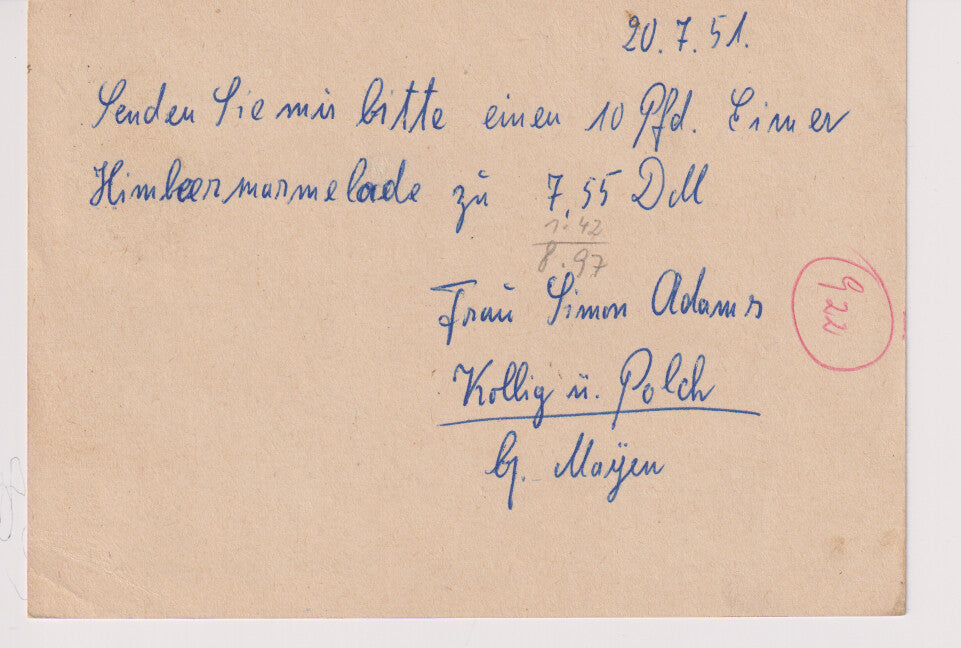 20.7.51.
Senden Sie mir bitte einen 10 Pfd. Eimer
Himbeermarmelade zu 7,55 DM
1.42
8.97
Frau Simon Adams
Kollig ü. Polch
bj. Mayen
922